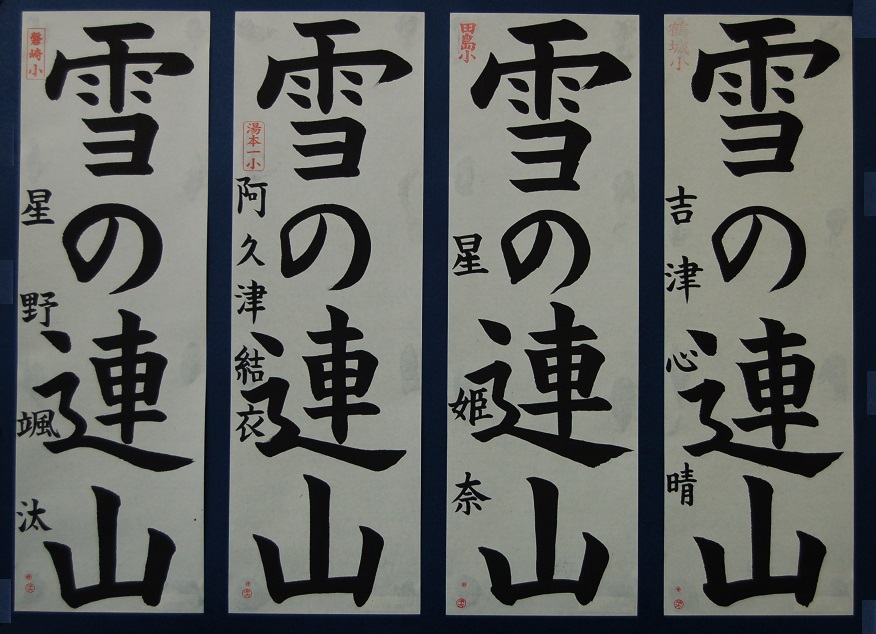 鶴城小
雪の連山
吉津心晴
田島小
雪の連山
星姫奈
湯本一小
雪の連山
阿久津結衣
磐崎小
雪の連山
星野颯汰